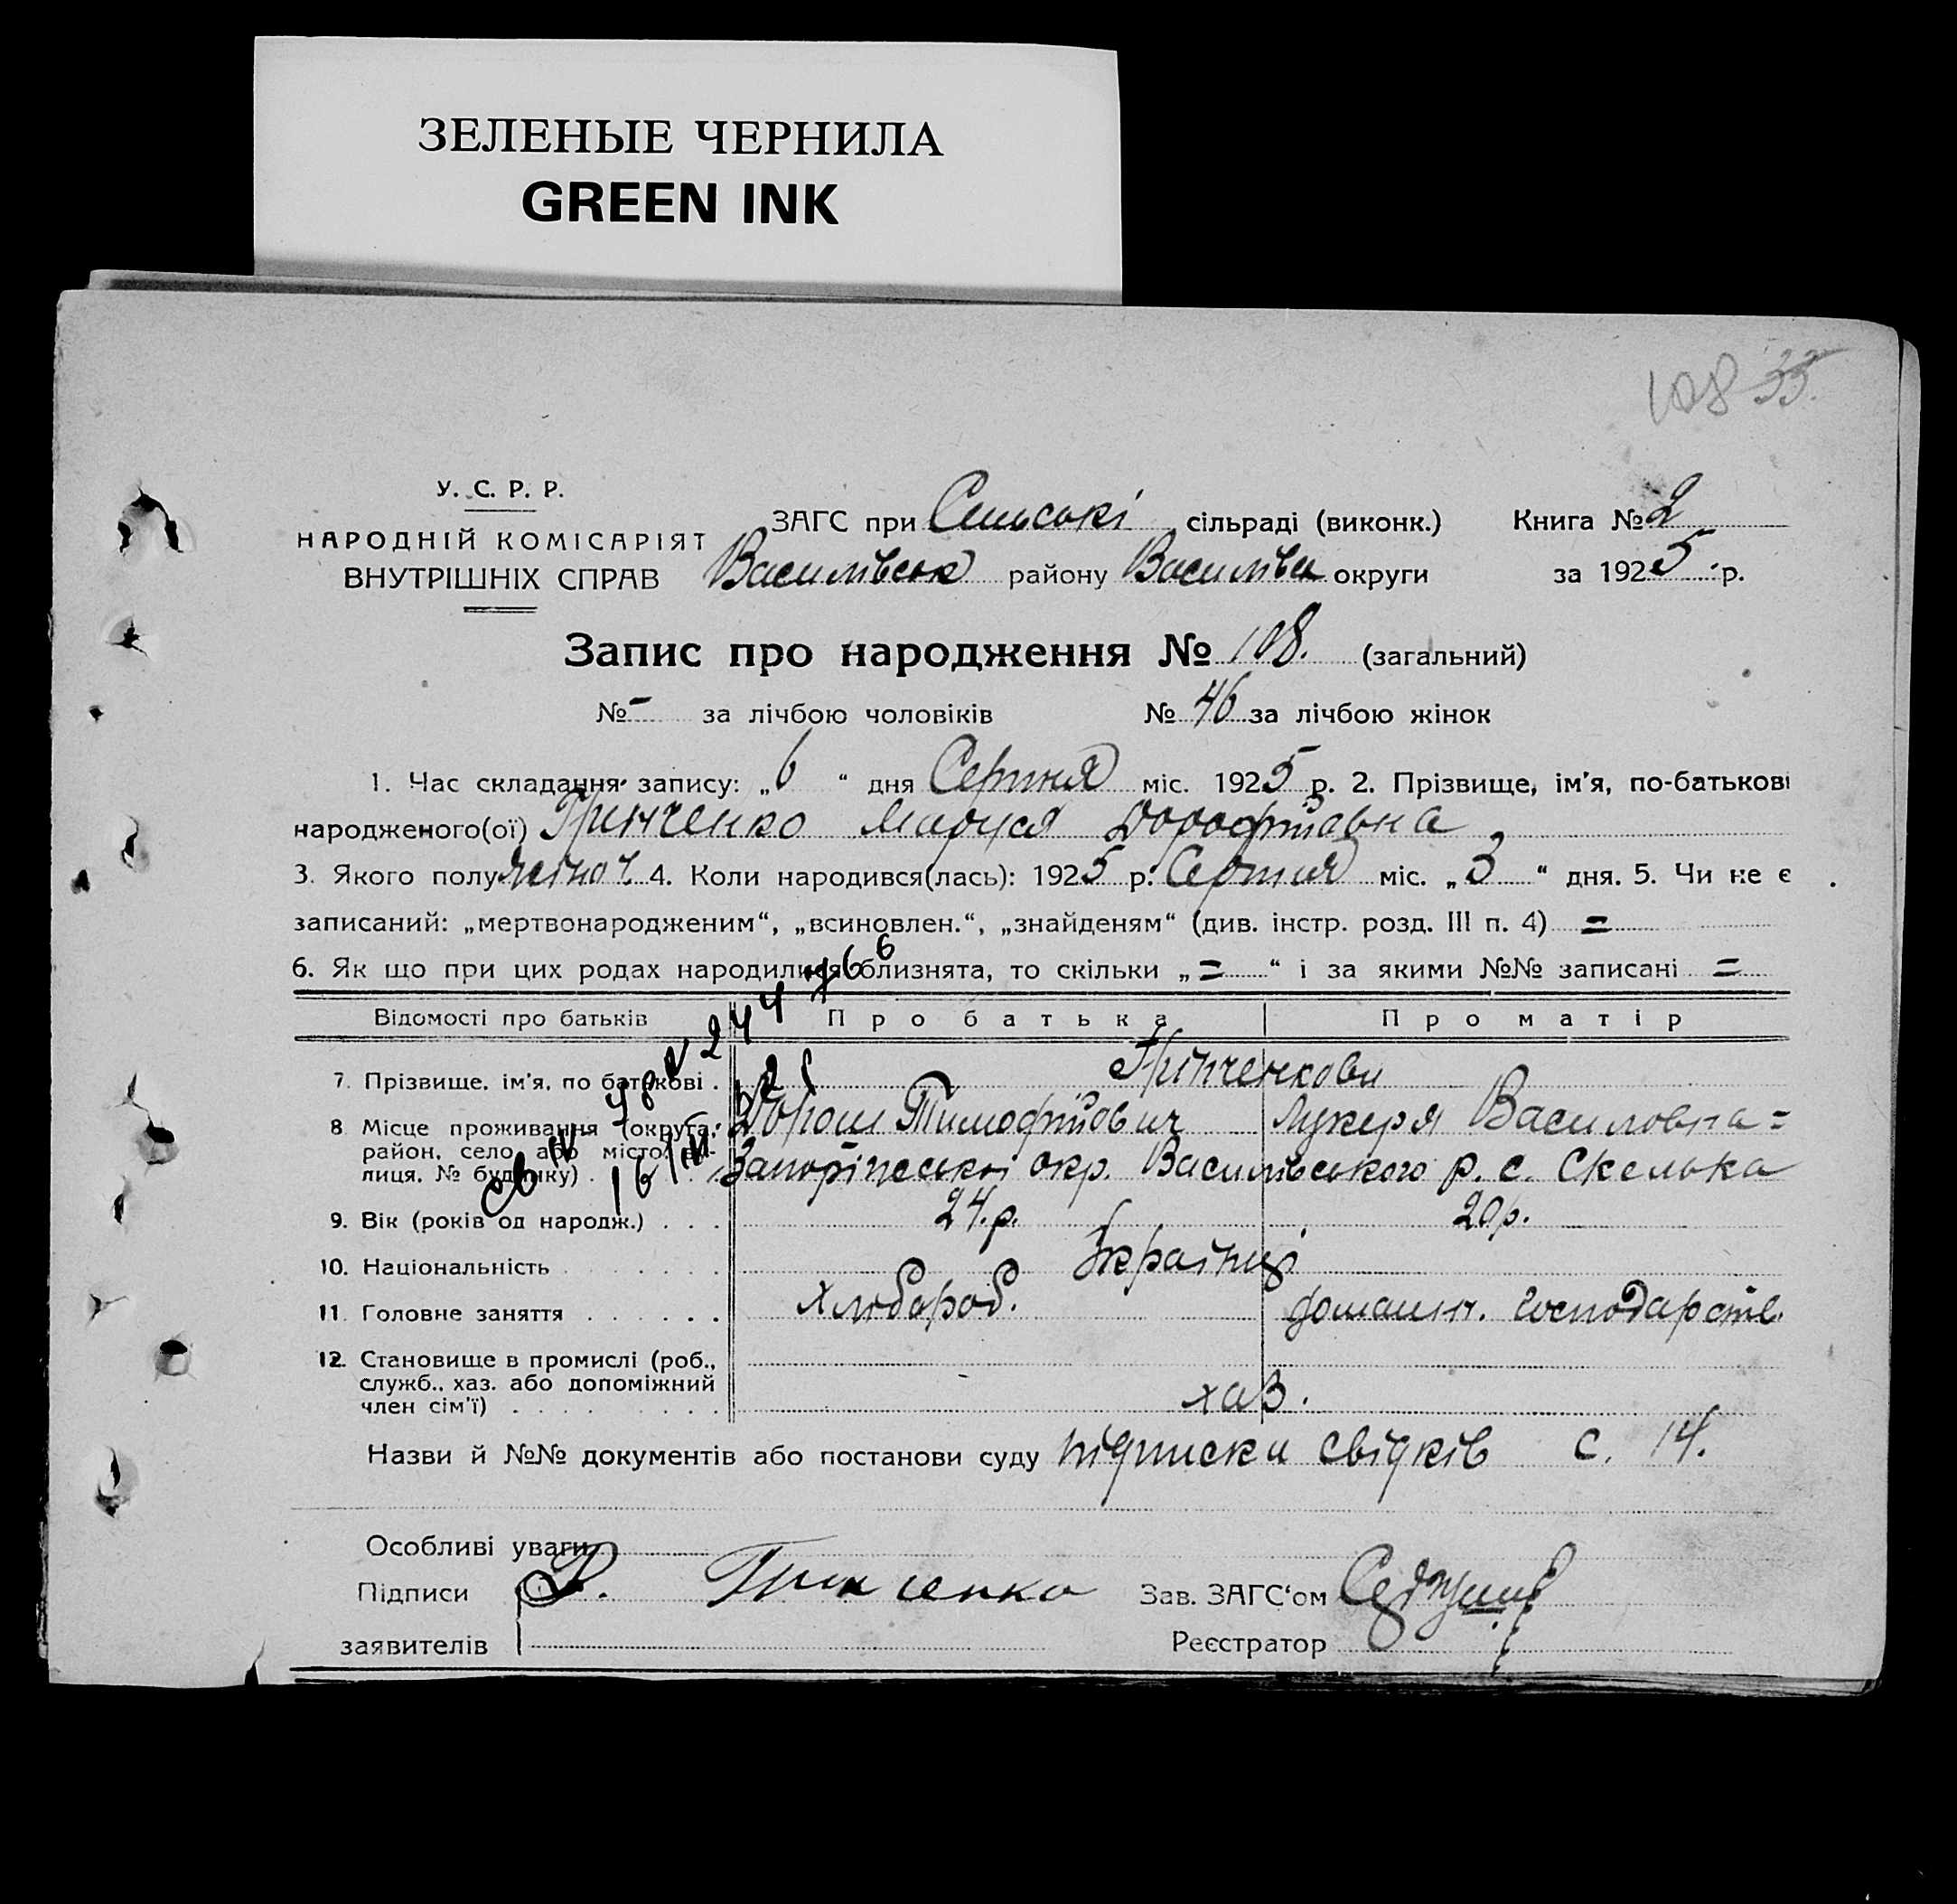 ЗЕЛЕНЫЕ ЧЕРНИЛА
GREEN INK
108 33.
У. С. Р. Р.
НАРОДНІЙ КОМІСАРІЯТ
ВНУТРІШНІХ СПРАВ
ЗАГС при сільраді (виконк.) Книга № 2
Василівськ району Василівськ округи за 1925 р.
Запис про народження № 108. (загальний)
№ - за лічбою чоловіків № 46 за лічбою жінок
1. Час складання запису: „6“ дня Серпня міс. 1925 р. 2. Прізвище, ім'я, по-батькові
народженого(ої) Грінченко Маруся Дорофтівна
3. Якого полу жіноч. 4. Коли народився(лась): 1925 р. Серпня міс. „3“ дня. 5. Чи не є
записаний: „мертвонародженим“, „всиновлен.“, „знайденям“ (див. інстр. розд. III п. 4) =
6. Як що при цих родах народилися близнята, то скільки „=“ і за якими №№ записані =
Відомості про батьків Про батька Про матір
7. Прізвище, ім'я, по батькові . Грінченкови
8 Місце проживання (округа, район, село або місто, вулиця, № будинку) . Дорош Тимофтович Лукеря Василовна =
Запоріжські окр. Василівського р. с. Скелька
9. Вік (років од народж.) . . . 24.р. 20р.
10. Національність Українці
11. Головне заняття . . . . . . Хлібороб. домашн. господарств.
12. Становище в промислі (роб.,
служб., хаз. або допоміжний
член сім'ї) хаз.
Назви й №№ документів або постанови суду підписки свідків с. 14.
Особливі уваги
Підписи Д. Гринченко Зав. ЗАГС‘ом
заявителів Реєстратор